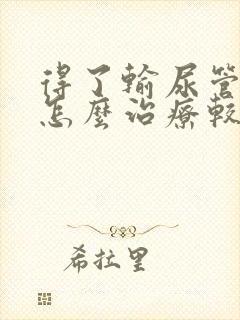 得了輸尿管
怎麼治療較
希拉里